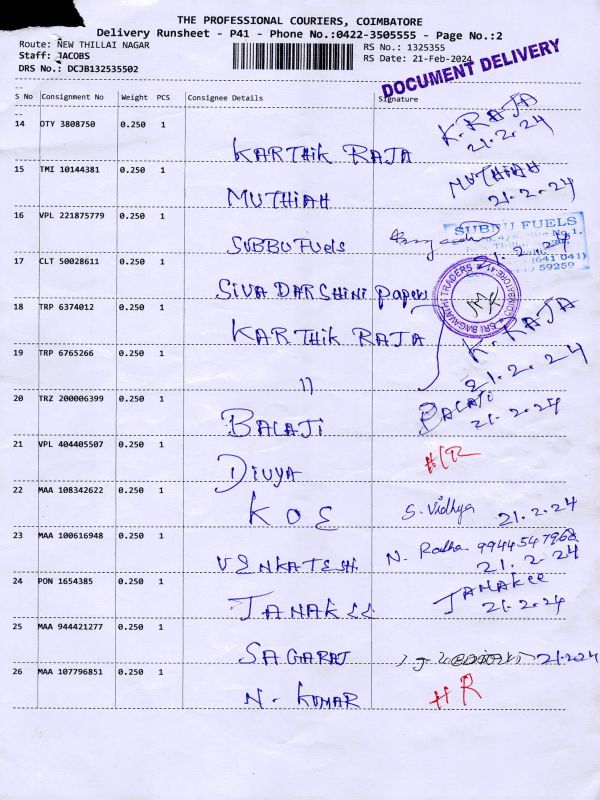 THE PROFESSIONAL COURIERS, COIMBATORE
Delivery Runsheet - P41 - Phone No.:0422-3505555 - Page No.:2
Route: NEW THILLAI NAGAR
Staff: JACOBS
DRS No.: DCJB132535502
RS No.: 1325355
RS Date: 21-Feb-2024
DOCUMENT DELIVERY
S No Consignment No Weight PCS Consignee Details Signature
14 OTY 3808750 0.250 1 KARTHIK RAJA K. RAJA 21.2.24
15 TMI 10144381 0.250 1 MUTHIAH MUTHIAH 21.2.24
16 VPL 221875779 0.250 1 SUBBU FUELS 21.2.24
SUBBU FUELS
(641 041)
59259
17 CLT 50028611 0.250 1 SIVA DARSHINI papers
SRI BAGAVATHI TRADERS COIMBATORE
18 TRP 6374012 0.250 1 KARTHIK RAJA K. RAJA
19 TRP 6765266 0.250 1 11 21.2.24
20 TRZ 200006399 0.250 1 BALAJI BALAJI 21.2.24
21 VPL 404405507 0.250 1 DIVYA HR
22 MAA 108342622 0.250 1 KOE S. Vidhya 21.2.24
23 MAA 100616948 0.250 1 VENKATESH. N. Radha 9944547968 21.2.24
24 PON 1654385 0.250 1 JANAKEE JANAKEE 21.2.24
25 MAA 944421277 0.250 1 SAGARAJ 21.2.024
26 MAA 107796851 0.250 1 N. KUMAR HR